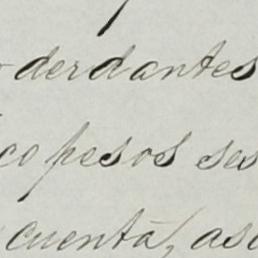 derdantes
co pesos ses
cuenta, asi